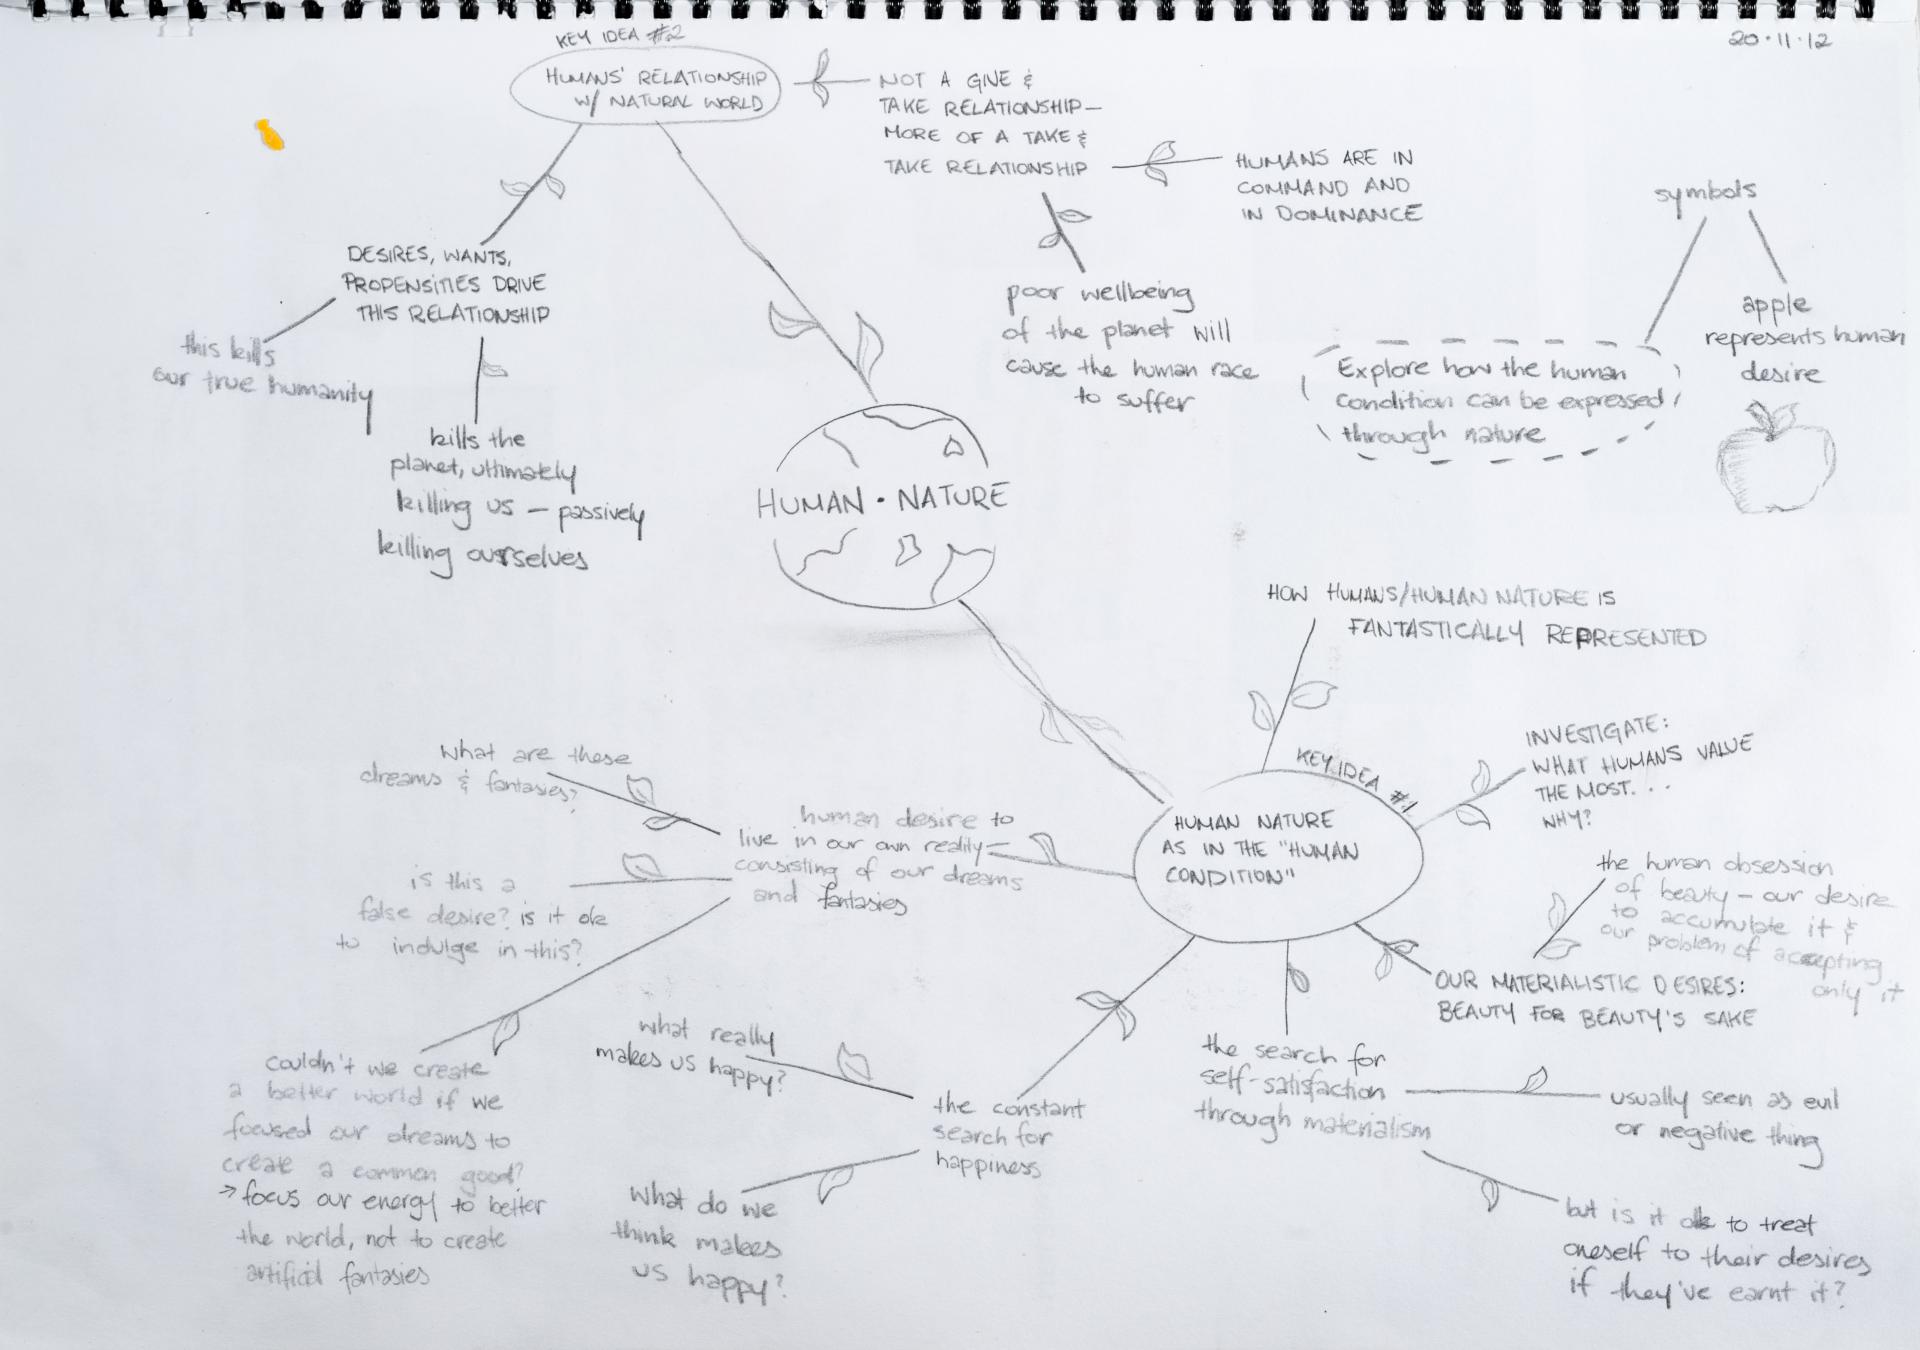 20·11·12
KEY IDEA #2
HUMANS' RELATIONSHIP
W/ NATURAL WORLD
NOT A GIVE &
TAKE RELATIONSHIP—
MORE OF A TAKE &
TAKE RELATIONSHIP
HUMANS ARE IN
COMMAND AND
IN DOMINANCE
poor wellbeing
of the planet will
cause the human race
to suffer
DESIRES, WANTS,
PROPENSITIES DRIVE
THIS RELATIONSHIP
this kills
our true humanity
kills the
planet, ultimately
killing us — passively
killing ourselves
symbols
apple
represents human
desire
Explore how the human
condition can be expressed
through nature
HUMAN · NATURE
HOW HUMANS/HUMAN NATURE IS
FANTASTICALLY REPRESENTED
KEY IDEA #1
HUMAN NATURE
AS IN THE "HUMAN
CONDITION"
INVESTIGATE:
WHAT HUMANS VALUE
THE MOST. . .
WHY?
the human obsession
of beauty — our desire
to accumulate it &
our problem of accepting
only it
OUR MATERIALISTIC DESIRES:
BEAUTY FOR BEAUTY'S SAKE
the search for
self-satisfaction
through materialism
usually seen as evil
or negative thing
but is it ok to treat
oneself to their desires
if they've earnt it?
the constant
search for
happiness
what really
makes us happy?
what do we
think makes
us happy?
human desire to
live in our own reality—
consisting of our dreams
and fantasies
what are these
dreams & fantasies?
is this a
false desire? is it ok
to indulge in this?
couldn't we create
a better world if we
focused our dreams to
create a common good?
→ focus our energy to better
the world, not to create
artificial fantasies